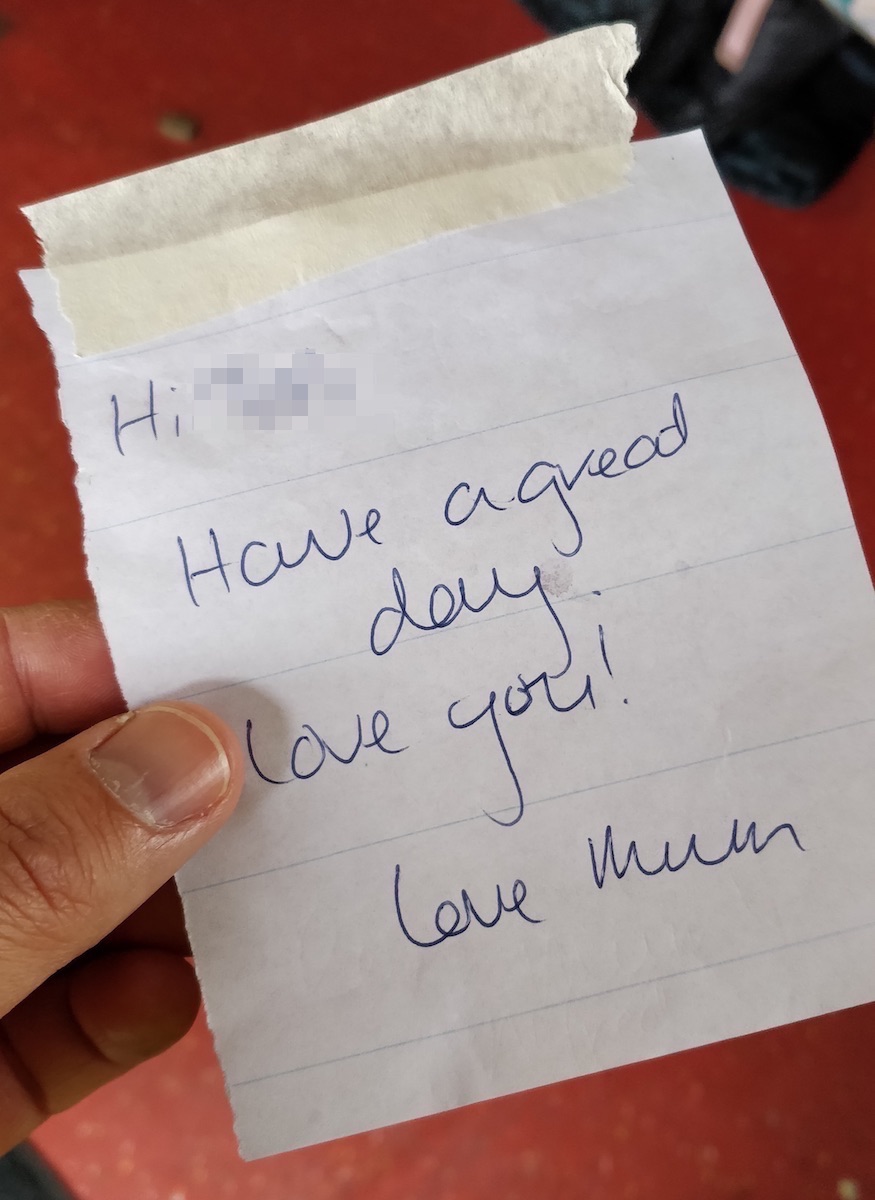 Hi
Have a great
day.
Love you!
Love Mum